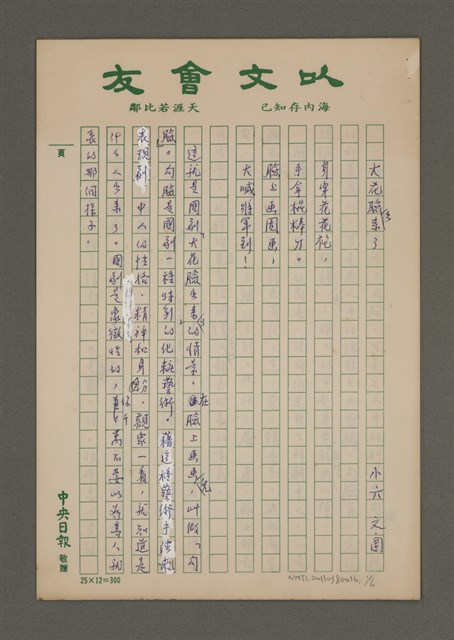 以文會友
海內存知己
天涯若比鄰
大花臉來了
小六 文/圖
身穿花花袍，
手拿棍棒刀。
臉上畫圖畫，
大喊將軍到！
這就是國劇大花臉出來的情景。在臉上畫畫兒，叫做「勾
臉」。勾臉是國劇一種特別的化粧藝術。藉這種藝術手法來
表現劇中人的性格、精神和身份。觀眾一看，就知道是
什麼人出來了。國劇是象徵性的，你千萬不要以為真人就
長的那個樣子。
頁
中央日報 敬贈
25×12=300
1/6